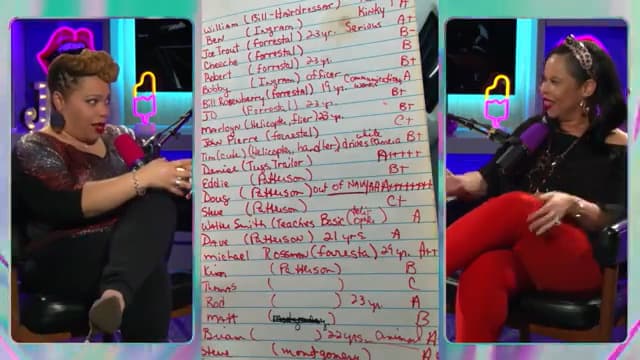 William (Bill-Hairdresser) A
Ben (Ingram) Kinky A+
Joe Trout (Forrestal) 23 yr. Serious B
Cheeche (forrestal) B
Robert (forrestal) 23 yr. B+
Bobby (Ingram) officer Communications A
Bill Rosenberry (forrestal) 19 yr. B+
JD (Forrestal) 22 yr. B+
Marloyn (Helicopter, flier) 23 yr. C+
John Pierre (forrestal) white B+
Tim (cute) (Helicopter, handler) drives Camera A++++
Daniel (Tugs, Trailor) B+
Eddie (Patterson)
Doug (Patterson) out of NAVY A+++++++
Steve (Patterson) C+
Walter Smith (Teaches Basic) A
Dave (Patterson) 21 yrs A++
michael Rossman (forresta) 29 yr. A++
Kinn (Patterson) B
Thomas ( ) C
Rod ( ) 23 yr. A
Matt ( ) B
Brian ( ) 22 yrs. animal A
Steve (montgomery) A